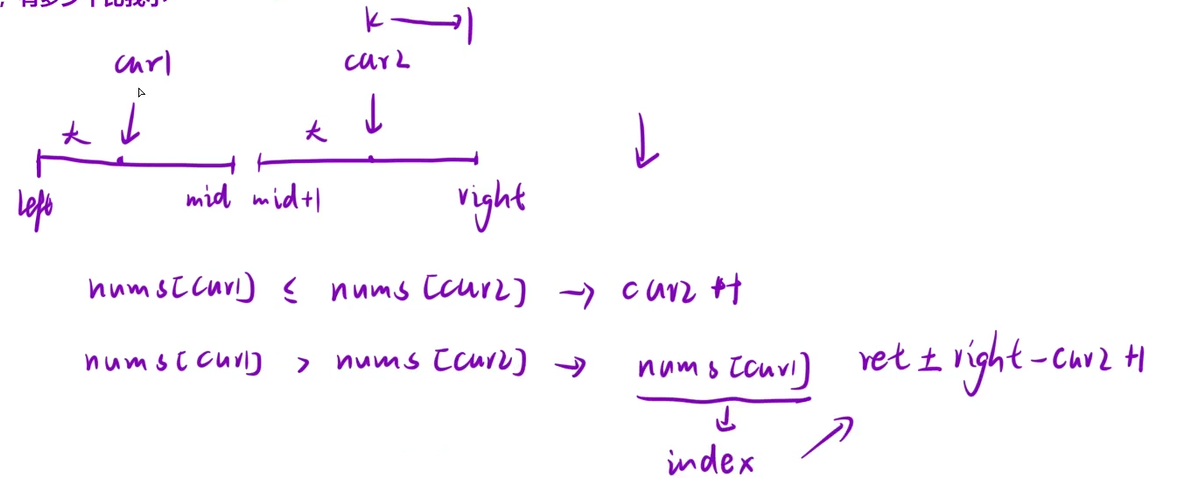 k
cur1 cur2
大 大
left mid mid+1 right
nums[cur1] ≤ nums[cur2] → cur2++
nums[cur1] > nums[cur2] → nums[cur1] ret += right-cur2+1
index